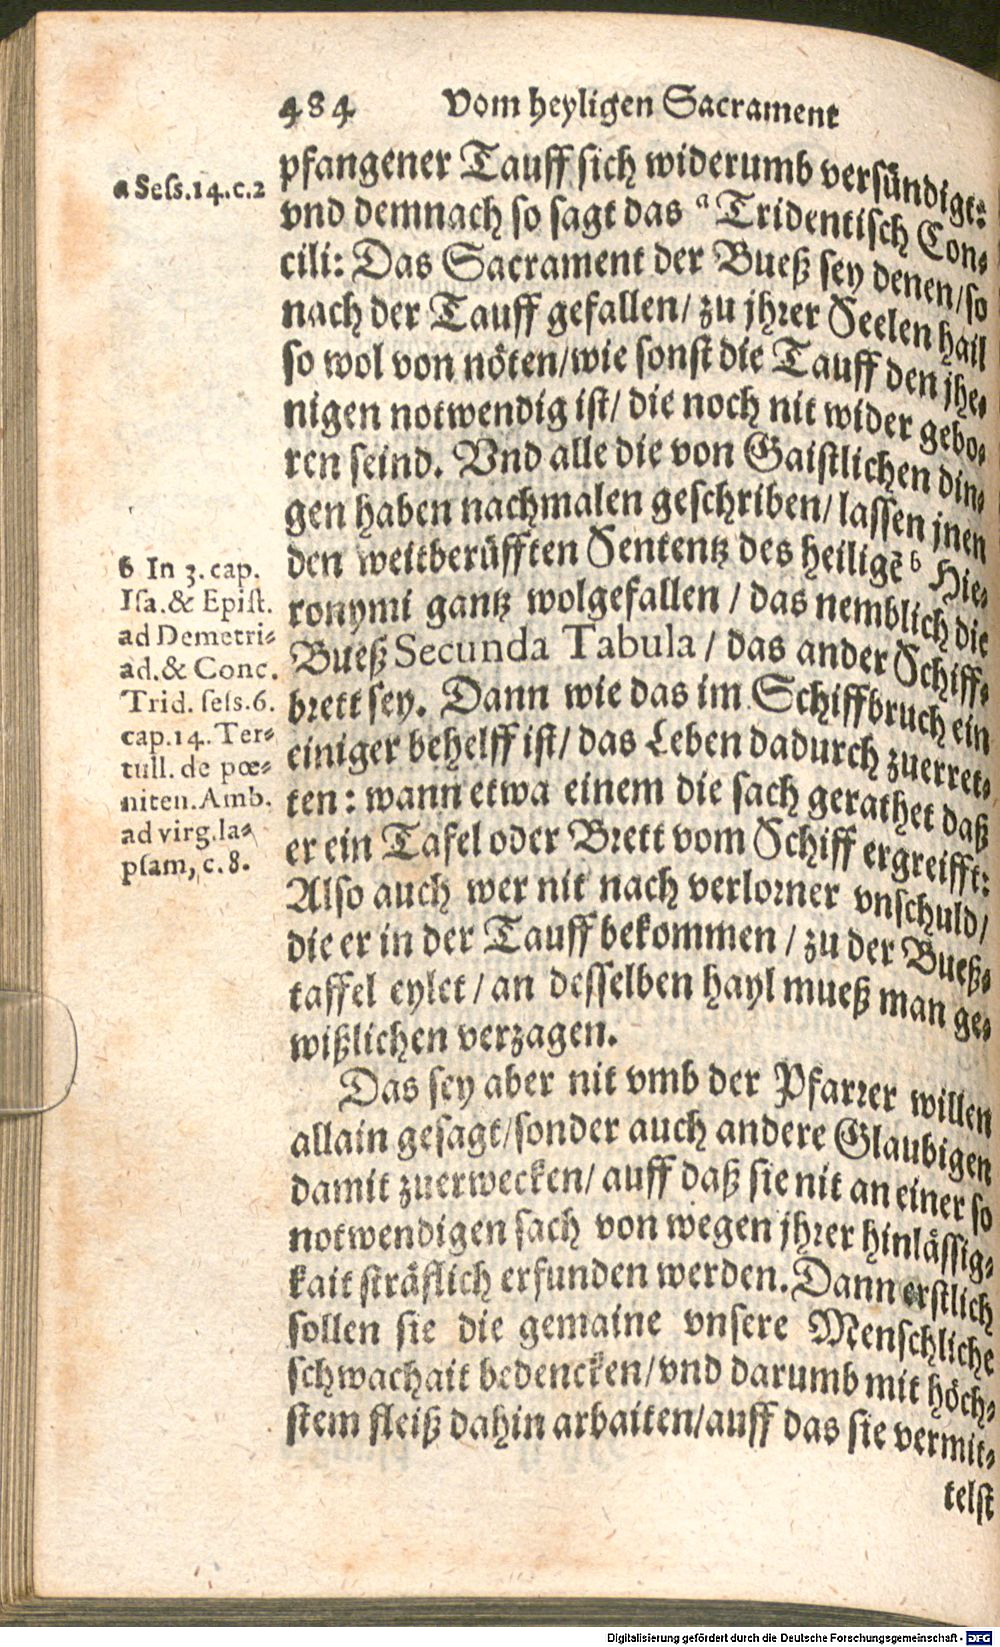 484 Vom heyligen Sacrament
pfangener Tauff sich widerumb versündigt:
vnd demnach so sagt das ᵃ Tridentisch Con⸗
cili: Das Sacrament der Bueß sey denen/so
nach der Tauff gefallen/ zu jhrer Seelen hail
so wol von nöten/wie sonst die Tauff den jhe⸗
nigen notwendig ist/ die noch nit wider gebo⸗
ren seind. Vnd alle die von Gaistlichen din⸗
gen haben nachmalen geschriben/ lassen jnen
den weitberüfften Sententz des heiligẽ ᵇ Hie⸗
ronymi gantz wolgefallen / das nemblich die
Bueß Secunda Tabula / das ander Schiff⸗
brett sey. Dann wie das im Schiffbruch ein
einiger behelff ist/ das Leben dadurch zuerret⸗
ten: wann etwa einem die sach gerathet daß
er ein Tafel oder Brett vom Schiff ergreifft:
Also auch wer nit nach verlorner vnschuld/
die er in der Tauff bekommen / zu der Bueß⸗
taffel eylet / an desselben hayl mueß man ge⸗
wißlichen verzagen.
Das sey aber nit vmb der Pfarrer willen
allain gesagt/sonder auch andere Glaubigen
damit zuerwecken/ auff daß sie nit an einer so
notwendigen sach von wegen jhrer hinlässig⸗
kait sträflich erfunden werden. Dann erstlich
sollen sie die gemaine vnsere Menschliche
schwachait bedencken/vnd darumb mit höch⸗
stem fleiß dahin arbaiten/auff das sie vermit⸗
telst
a Sess.14.c.2
b In 3. cap.
Isa.& Epist.
ad Demetri⸗
ad.& Conc.
Trid. sess.6.
cap.14. Ter⸗
tull. de pœ⸗
niten. Amb.
ad virg.la⸗
psam, c.8.
Digitalisierung gefördert durch die Deutsche Forschungsgemeinschaft - DFG